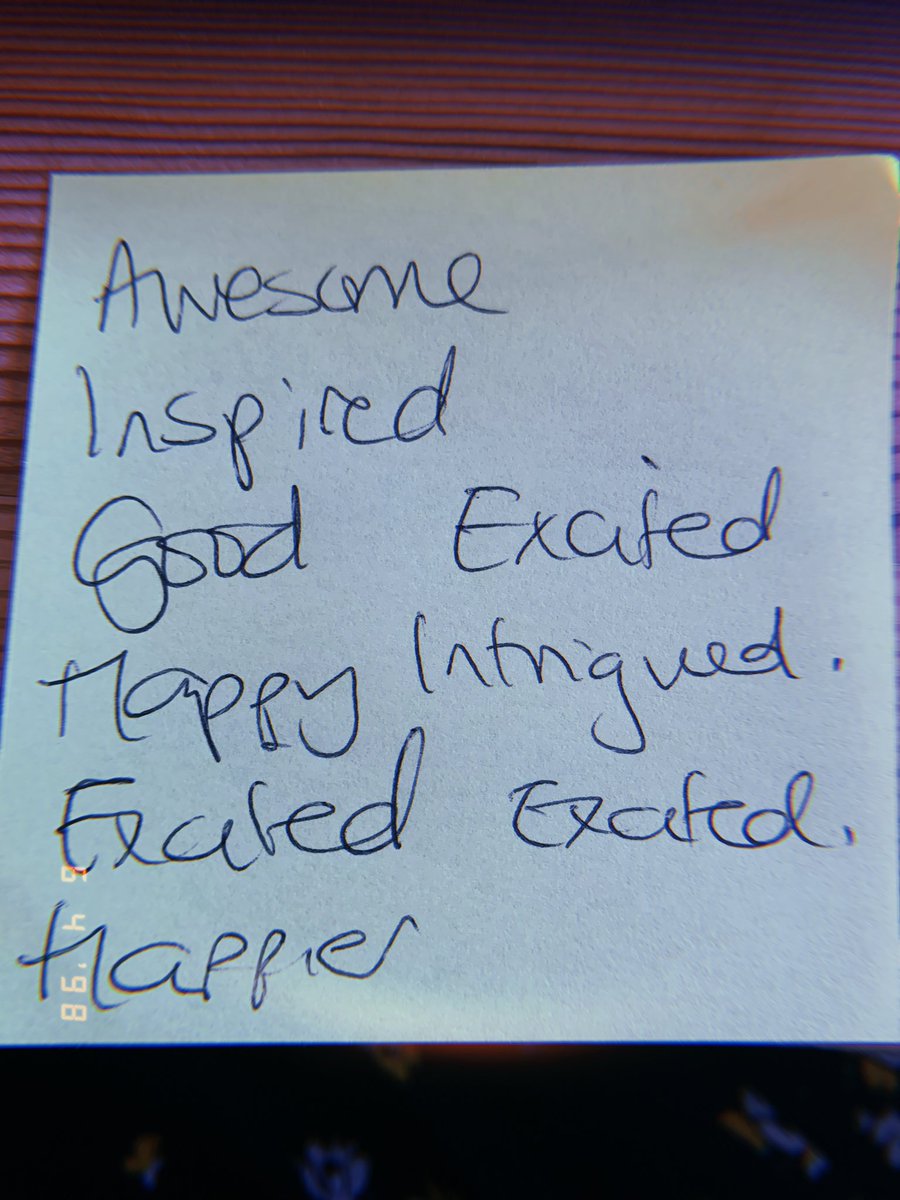 Awesome
Inspired
Good Excited
Happy Intrigued.
Excited Excited.
Happier
6 4 '98